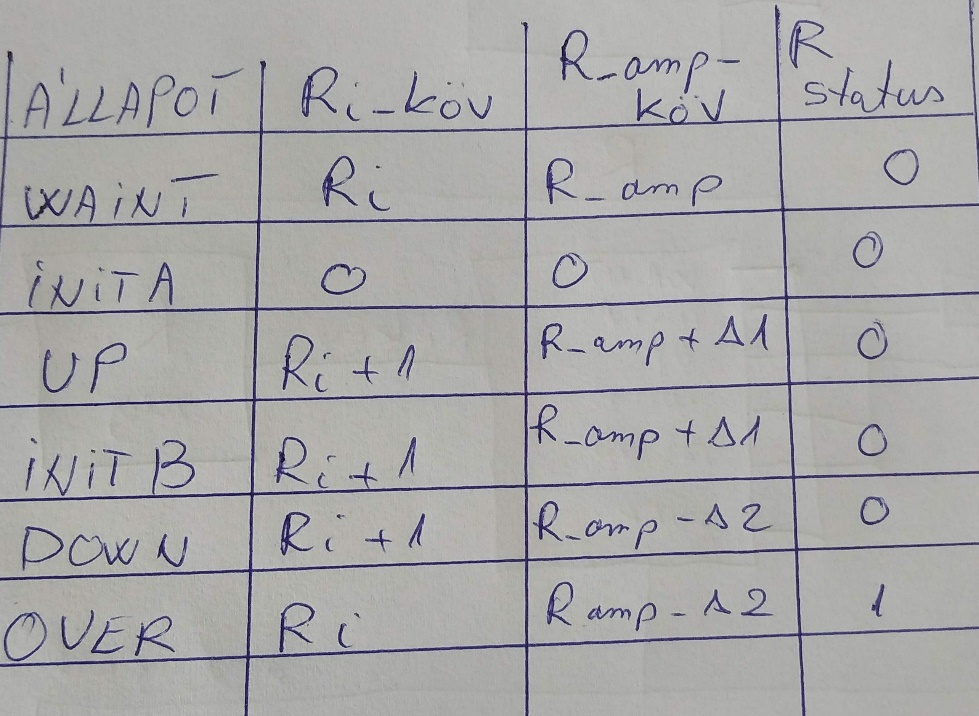 ÁLLAPOT Ri-köv R_amp-köv R status
WAiNT Ri R_amp 0
iNiTA 0 0 0
UP Ri+1 R_amp+Δ1 0
iNiTB Ri+1 R_amp+Δ1 0
DOWN Ri+1 R_amp-Δ2 0
OVER Ri Ramp-Δ2 1